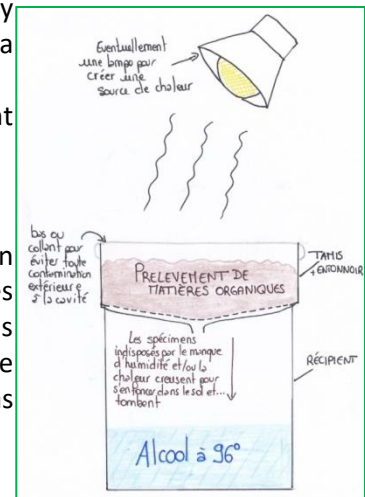 y
a
nt
n
es
s
e
ns
Eventuellement
une lampe pour
créer une
source de chaleur
bas ou
collant pour
éviter toute
contamination
extérieure
à la cavité
PRELEVEMENT DE
MATIÈRES ORGANIQUES
TAMIS
+ENTONNOIR
Les spécimens
indisposés par le manque
d'humidité et/ou la
chaleur creusent pour
s'enfoncer dans le sol et...
tombent
RÉCIPIENT
Alcool à 96°